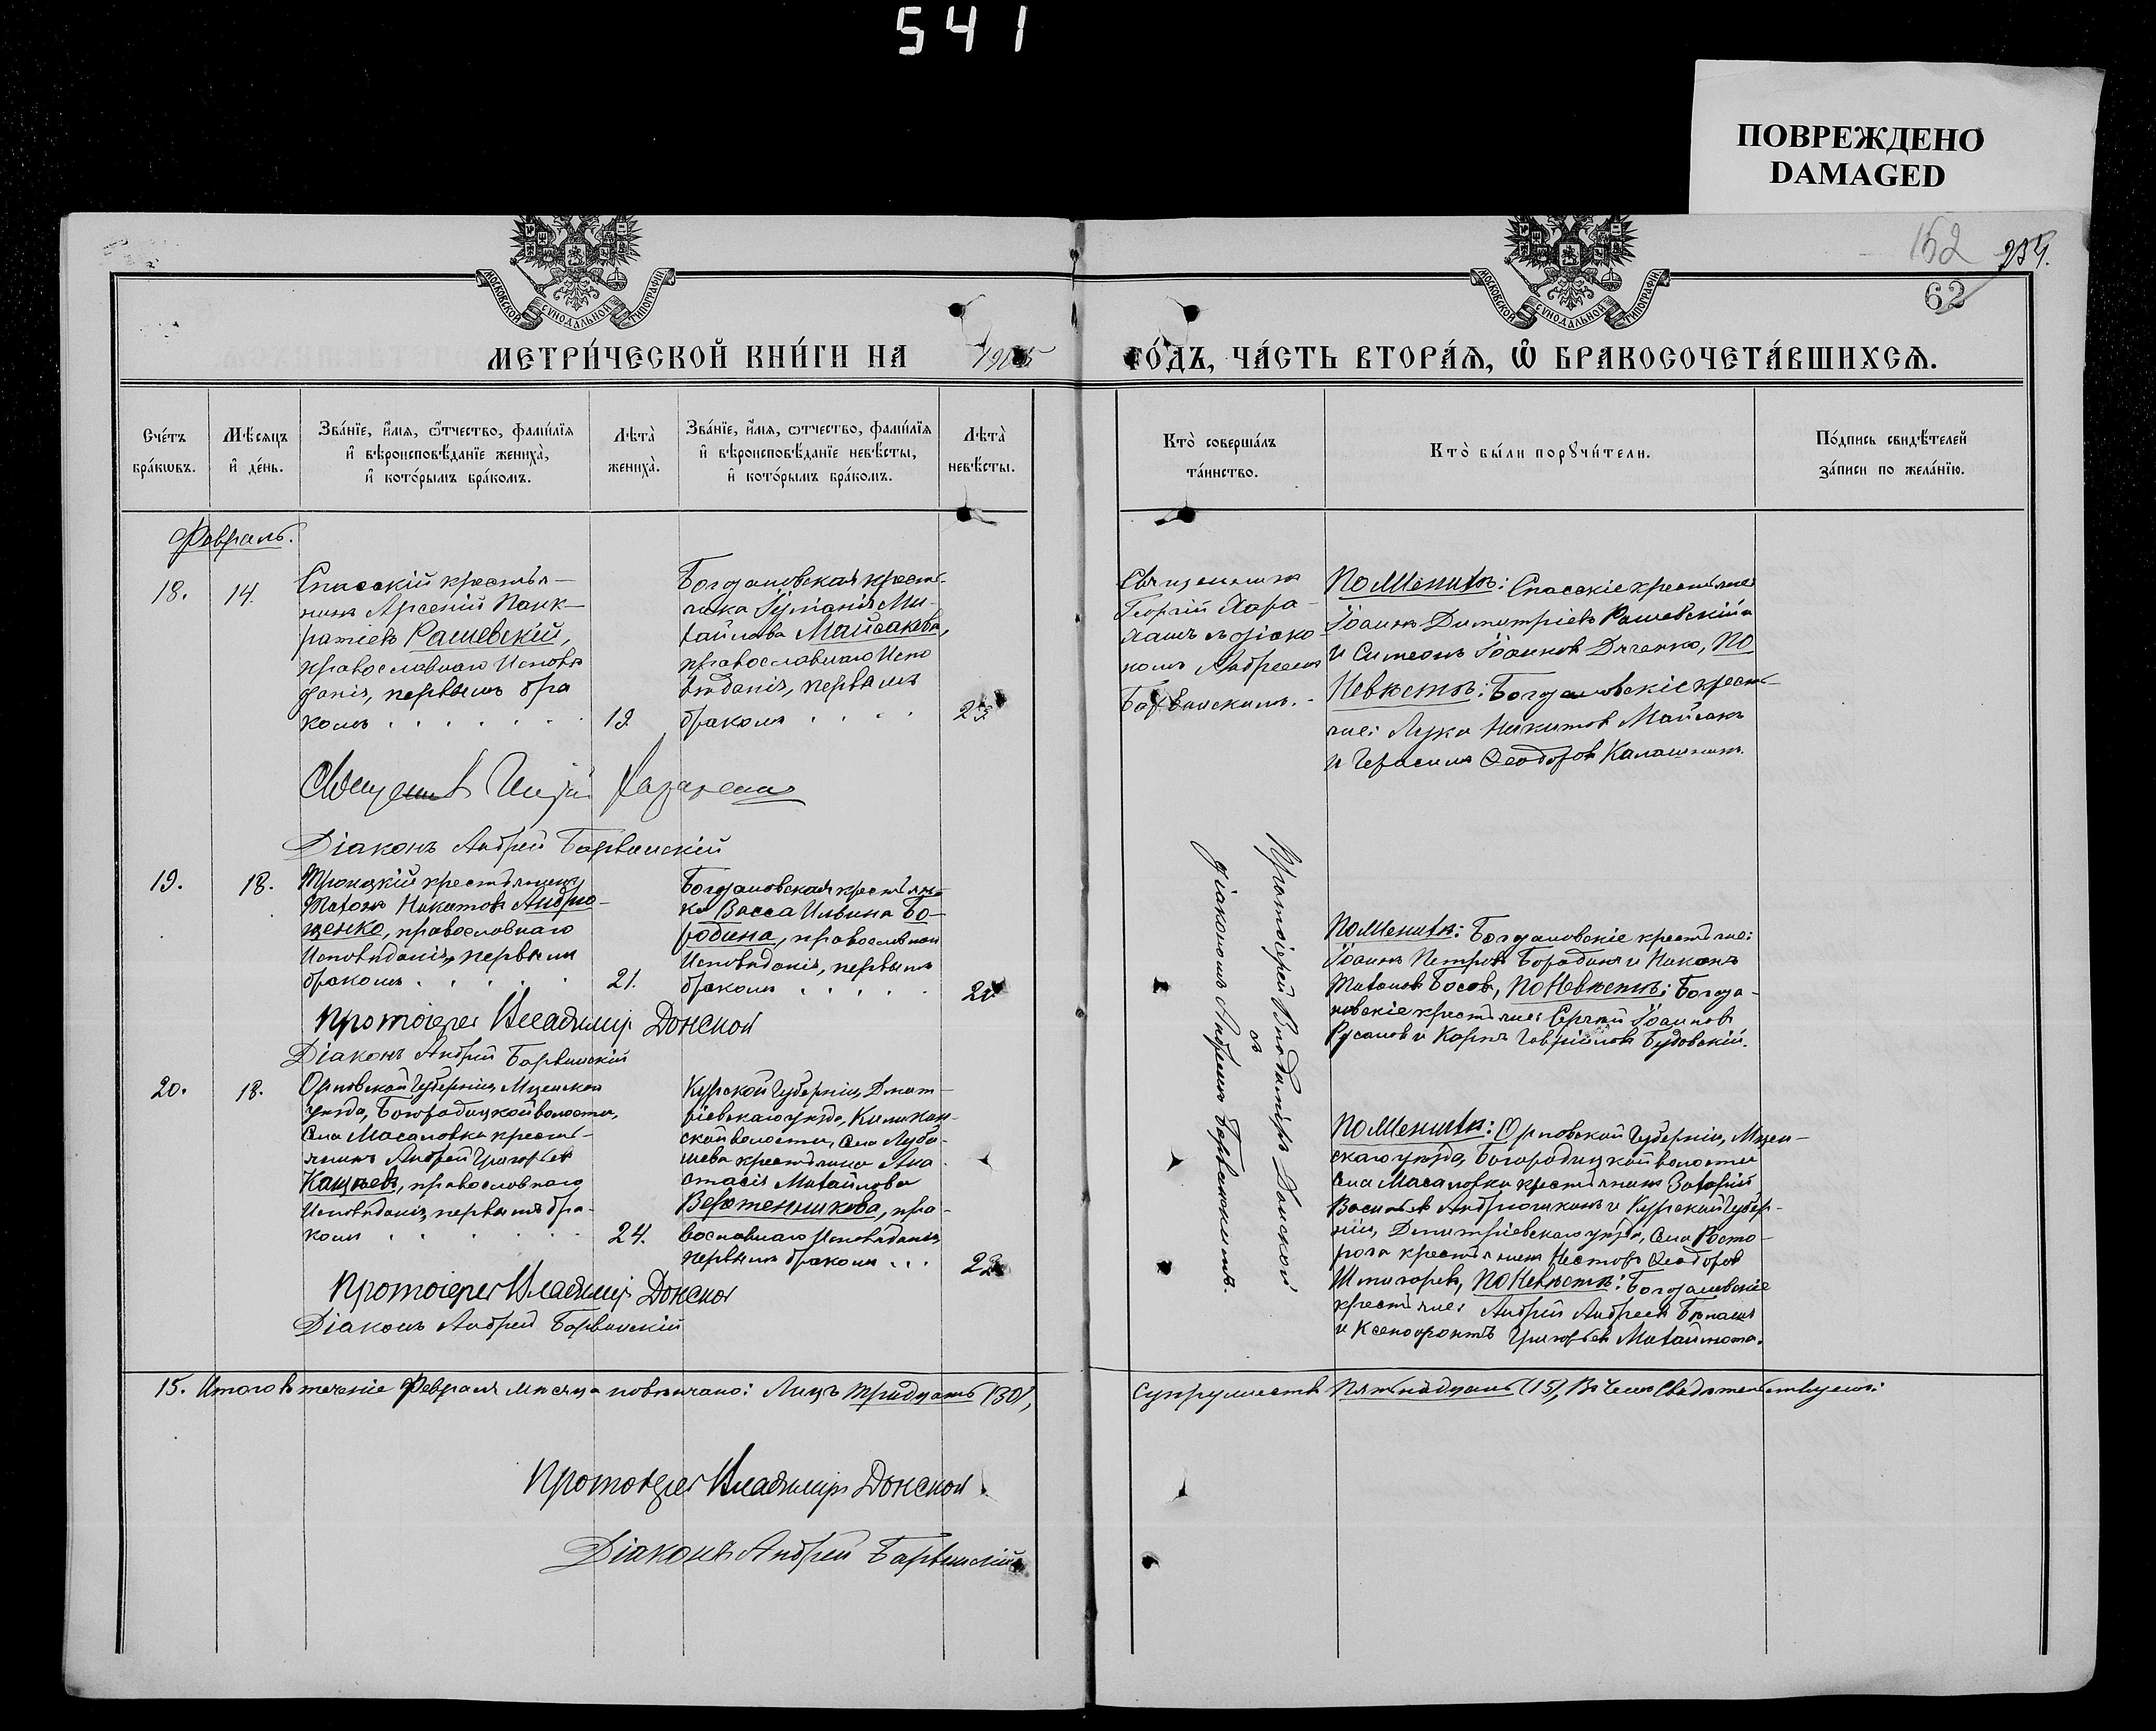 541
ПОВРЕЖДЕНО
DAMAGED
162
62
МОСКОВСКОЙ СѴНОДАЛЬНОЙ ТИПОГРАФІИ
МОСКОВСКОЙ СѴНОДАЛЬНОЙ ТИПОГРАФІИ
МЕТРИ́ЧЕСКОЙ КНИ́ГИ НА
ГО́ДЪ, ЧА́СТЬ ВТОРА́Ѧ, Ѡ҆ БРАКОСОЧЕТА́ВШИХСѦ.
Сче́тъ
бра́кѡвъ.
Мѣ́сѧцъ
и҆ де́нь.
Зва́нїе, и҆́мѧ, ѻ҆́тчество, фами́лїѧ
и҆ вѣроисповѣ́данїе жениха̀,
и҆ кото́рымъ бра́комъ.
Лѣ́та̀
жениха̀.
Зва́нїе, и҆́мѧ, ѻ҆́тчество, фами́лїѧ
и҆ вѣроисповѣ́данїе невѣ́сты,
и҆ кото́рымъ бра́комъ.
Лѣ́та̀
невѣ́сты.
Кто̀ соверша́лъ
та́инство.
Кто̀ бы́ли порꙋчи́тели.
По́дпись свидѣ́телей
за́писи по жела́нїю.
Февраль.
18.
14.
Спасскій крестья-
нинъ Арсеній Панк-
ратіевъ Рашевскій,
православнаго Исповѣ
данія, первымъ бра
комъ
19
Богдановская кресть-
Ми-
хайлова Майсакова,
православнаго Испо
вѣданія, первымъ
бракомъ
Священникъ
Георгій
съ діако-
номъ Андреемъ
Барвинскимъ.
По Женихѣ: Спасскіе крестьяне:
Іоаннъ Димитріевъ Рашевскій
и Симеонъ Іоанновъ Дяченко, По
Невѣстѣ: Богдановскіе кресть-
яне: Лука Никитовъ Майсакъ
и Герасимъ Ѳеодоровъ Калашникъ.
Діаконъ Андрей Барвинскій
19.
18.
Троицкій крестьянинъ
Никитовъ Андрю-
щенко, православнаго
Исповѣданія, первымъ
бракомъ
21.
Богдановская крестьян-
ка Васса Ильина Бо-
родина, православнаго
Исповѣданія, первымъ
бракомъ
По Женихѣ: Богдановскіе крестьяне:
Іоаннъ Петровъ Бородинъ и Никонъ
Босовъ, По Невѣстѣ: Богда-
новскіе крестьяне: Сергій Іоанновъ
Русановъ и Карпъ Гавріиловъ Будовскій.
Протоіерей Владиміръ Донской
Діаконъ Андрей Барвинскій
Протоіерей Владиміръ Донской
съ
діакономъ Андреемъ Барвинскимъ.
20.
18.
Орловской Губерніи, Мценскаго
уѣзда, Богородицкой волости,
Села Масаловки кресть-
янинъ Андрей Григорьевъ
православнаго
Исповѣданія, первымъ бра-
комъ
24.
Курской Губерніи, Дмит-
ріевскаго уѣзда,
ской волости, Села
крестьянка Ана
стасія Михайлова
Веретенникова, пра-
вославнаго Исповѣданія,
первымъ бракомъ
По Женихѣ: Орловской Губерніи, Мцен-
скаго уѣзда, Богородицкой волости
Села Масаловки крестьянинъ Захарій
Васильевъ Андрюшкинъ и Курской Губер-
ніи, Дмитріевскаго уѣзда, Села
крестьянинъ Несторъ Ѳеодоровъ
По Невѣстѣ: Богдановскіе
крестьяне: Андрей Андреевъ
и Ксенофонтъ Григорьевъ
Протоіерей Владиміръ Донской
Діаконъ Андрей Барвинскій
15. Итого въ теченіе Февраля мѣсяца повѣнчано: Лицъ тридцать (30),
Супружествъ Пятнадцать (15), Въ чемъ Свидѣтельствуемъ:
Протоіерей Владиміръ Донской
Діаконъ Андрей Барвинскій